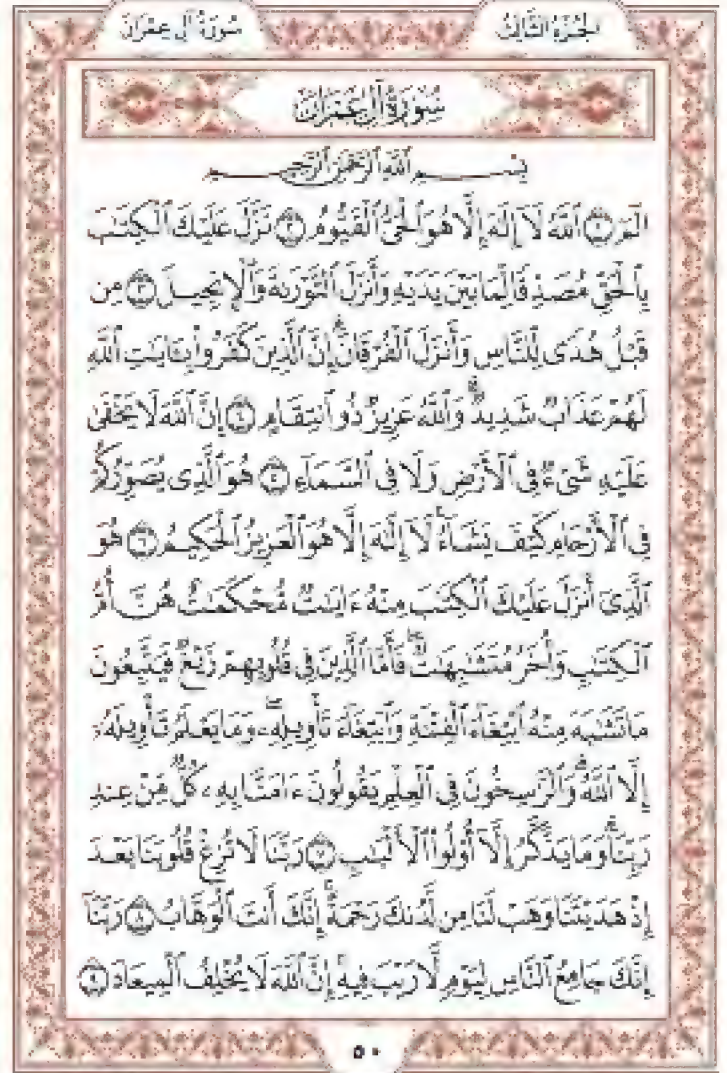 سُورَةُ آلِ عِمْرَانَ
الجُزْءُ الثَّالِثُ
سُورَةُ آلِ عِمْرَانَ
بِسْمِ ٱللَّهِ ٱلرَّحْمَٰنِ ٱلرَّحِيمِ
الٓمٓ ١ ٱللَّهُ لَآ إِلَٰهَ إِلَّا هُوَ ٱلْحَىُّ ٱلْقَيُّومُ ٢ نَزَّلَ عَلَيْكَ ٱلْكِتَٰبَ
بِٱلْحَقِّ مُصَدِّقًا لِّمَا بَيْنَ يَدَيْهِ وَأَنزَلَ ٱلتَّوْرَىٰةَ وَٱلْإِنجِيلَ ٣ مِن
قَبْلُ هُدًى لِّلنَّاسِ وَأَنزَلَ ٱلْفُرْقَانَ ۗ إِنَّ ٱلَّذِينَ كَفَرُوا۟ بِـَٔايَٰتِ ٱللَّهِ
لَهُمْ عَذَابٌ شَدِيدٌ ۗ وَٱللَّهُ عَزِيزٌ ذُو ٱنتِقَامٍ ٤ إِنَّ ٱللَّهَ لَا يَخْفَىٰ
عَلَيْهِ شَىْءٌ فِى ٱلْأَرْضِ وَلَا فِى ٱلسَّمَآءِ ٥ هُوَ ٱلَّذِى يُصَوِّرُكُمْ
فِى ٱلْأَرْحَامِ كَيْفَ يَشَآءُ ۚ لَآ إِلَٰهَ إِلَّا هُوَ ٱلْعَزِيزُ ٱلْحَكِيمُ ٦ هُوَ
ٱلَّذِىٓ أَنزَلَ عَلَيْكَ ٱلْكِتَٰبَ مِنْهُ ءَايَٰتٌ مُّحْكَمَٰتٌ هُنَّ أُمُّ
ٱلْكِتَٰبِ وَأُخَرُ مُتَشَٰبِهَٰتٌ ۖ فَأَمَّا ٱلَّذِينَ فِى قُلُوبِهِمْ زَيْغٌ فَيَتَّبِعُونَ
مَا تَشَٰبَهَ مِنْهُ ٱبْتِغَآءَ ٱلْفِتْنَةِ وَٱبْتِغَآءَ تَأْوِيلِهِۦ ۗ وَمَا يَعْلَمُ تَأْوِيلَهُۥٓ
إِلَّا ٱللَّهُ ۗ وَٱلرَّٰسِخُونَ فِى ٱلْعِلْمِ يَقُولُونَ ءَامَنَّا بِهِۦ كُلٌّ مِّنْ عِندِ
رَبِّنَا ۗ وَمَا يَذَّكَّرُ إِلَّآ أُو۟لُوا۟ ٱلْأَلْبَٰبِ ٧ رَبَّنَا لَا تُزِغْ قُلُوبَنَا بَعْدَ
إِذْ هَدَيْتَنَا وَهَبْ لَنَا مِن لَّدُنكَ رَحْمَةً ۚ إِنَّكَ أَنتَ ٱلْوَهَّابُ ٨ رَبَّنَآ
إِنَّكَ جَامِعُ ٱلنَّاسِ لِيَوْمٍ لَّا رَيْبَ فِيهِ ۚ إِنَّ ٱللَّهَ لَا يُخْلِفُ ٱلْمِيعَادَ ٩
٥٠